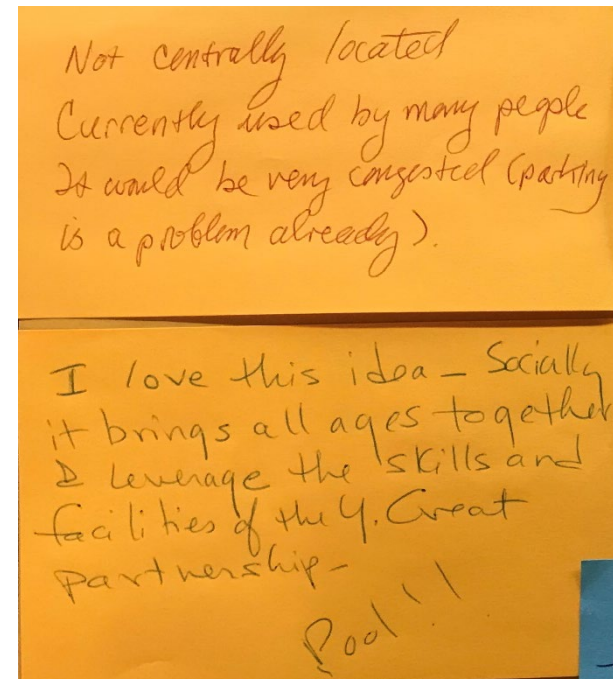 Not centrally located
Currently used by many people
It would be very congested (parking
is a problem already).
I love this idea - Socially
it brings all ages together
& leverage the skills and
facilities of the Y. Great
partnership -
Pool!!